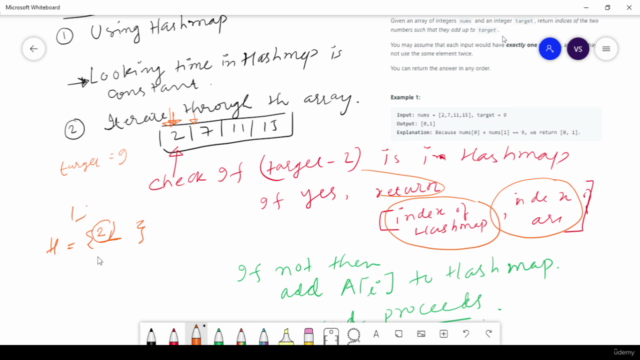 Microsoft Whiteboard
① Using Hashmap
→ Looking time in Hashmap is
constant.
② Iterate through th array.
| 2 | 7 | 11 | 15
target = 9
check If (target - 2) is in Hashmap
If yes, return
[index of Hashmap, index arr]
H = { 2 }
If not then
add A[i] to Hashmap.
proceeds.
Given an array of integers nums and an integer target, return indices of the two
numbers such that they add up to target.
You may assume that each input would have exactly one
not use the same element twice.
You can return the answer in any order.
Example 1:
Input: nums = [2,7,11,15], target = 9
Output: [0,1]
Explanation: Because nums[0] + nums[1] == 9, we return [0, 1].
VS
ûdemy